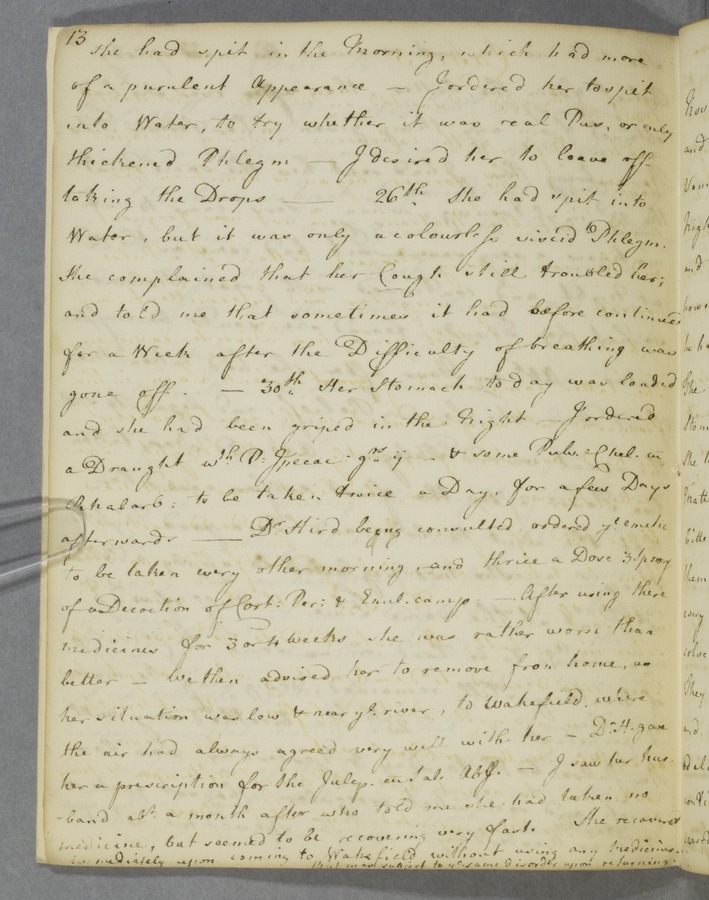 13
She had spit in the Morning, which had more
of a purulent Appearance — I ordered her to spit
into Water, to try whether it was real Pus, or only
thickened Phlegm — I desired her to leave off
taking the Drops — 26th She had spit into
Water, but it was only a colourless viscid Phlegm.
She complained that her Cough still troubled her;
and told me that sometimes it had before continued
for a Week after the Difficulty of breathing was
gone off. — 30th Her Stomach to day was loaded
and she had been griped in the Night — I ordered
a Draught wth P: Ipecac: grs ij — & some Pulv: e Chel. cu
Rhabarb: to be taken twice a Day, for a few Days
afterwards — Dr Hird being consulted ordered ye emetic
to be taken every other morning, and thrice a Dose
of a Decoction of Cort: Per: & Emul. camp. — After using these
medicines for 3 or 4 weeks she was rather worse than
better — We then advised her to remove from home, as
her situation was low & near ye river, to Wakefield, where
the air had always agreed very well with her — Dr H. gave
her a prescription for the Julep. e Sal: Abs. — I saw her hus-
-band abt a month after who told me she had taken no
medicine, but seemed to be recovering very fast. She recovered
immediately upon coming to Wakefield without using any medicines.
But was subject to ye same disorder upon returning.